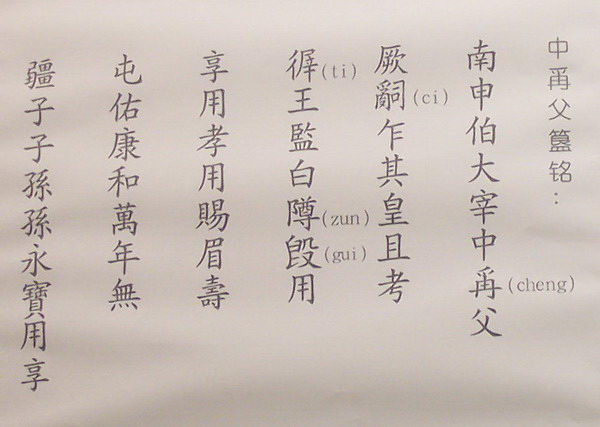 中爯父簋铭：
南申伯大宰中爯(cheng)父
厥𤔲(ci)乍其皇且考
徲(ti)王監白(zun)𣪘(gui)用
享用孝用賜眉壽
屯佑康和萬年無
疆子子孫孫永寶用享